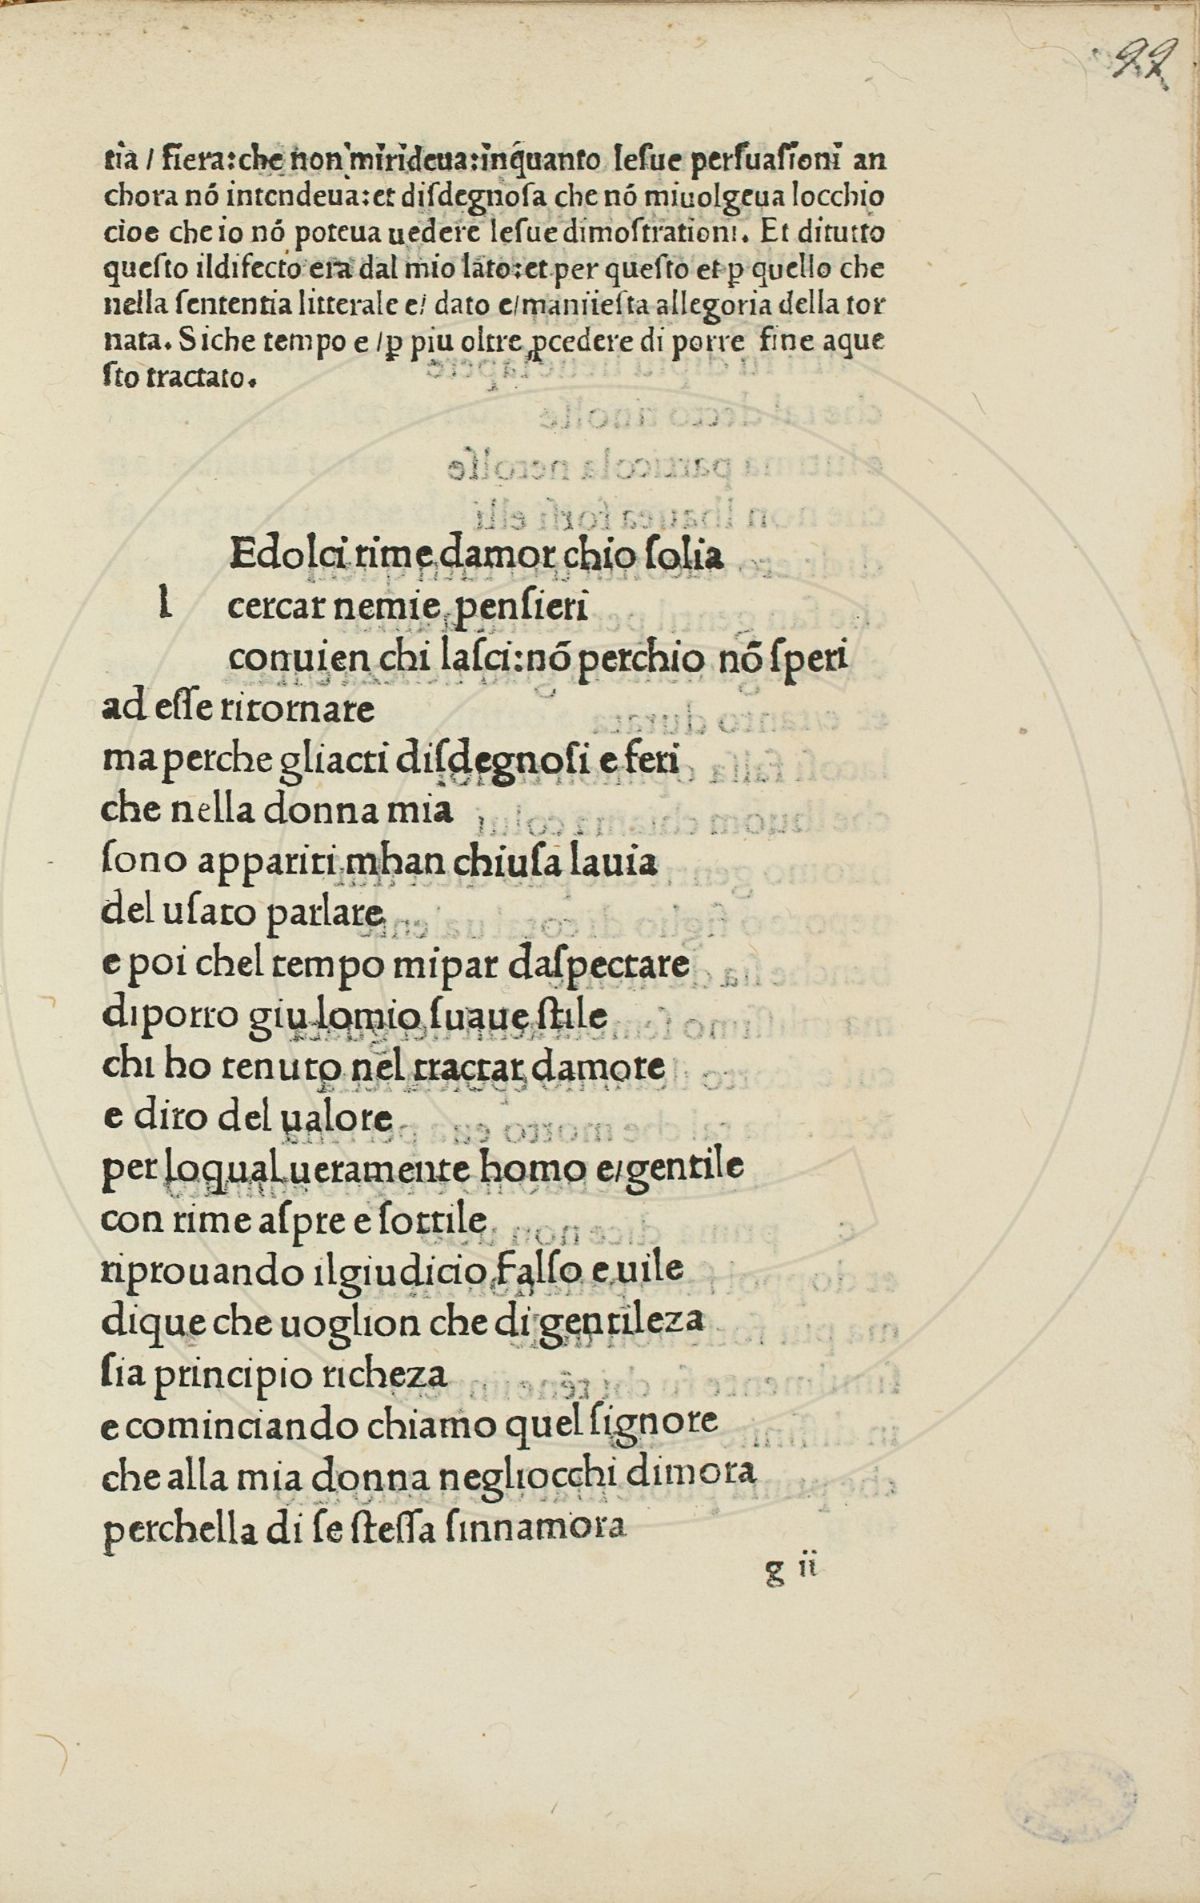 99
tia / fiera:che non mirideua:inq̃uanto leſue perſuaſioni an
chora nó intendeua:et diſdegnoſa che nó miuolgeua locchio
cioe che io nó poteua uedere leſue dimoſtrationi. Et ditutto
queſto ildifecto era dal mio lato:et per queſto et ꝑ quello che
nella ſententia litterale e/ dato e/maniieſta allegoria della tor
nata. Siche tempo e /ꝑ piu oltre ꝓcedere di porre fine aque
ſto tractato.
Edolci rime damor chio ſolia
l cercar nemie penſieri
conuien chi laſci:nõ perchio nõ ſperi
ad eſſe ritornare
ma perche gliacti diſdegnoſi e feri
che nella donna mia
ſono appariti mhan chiuſa lauia
del uſato parlare
e poi chel tempo mipar daſpectare
diporro giu lomio ſuaue ſtile
chi ho tenuto nel tractar damore
e diro del ualore
per loqual ueramente homo e/gentile
con rime aſpre e ſottile
riprouando ilgiudicio falſo e uile
dique che uoglion che di gentileza
ſia principio richeza
e cominciando chiamo quel ſignore
che alla mia donna negliocchi dimora
perchella di ſe ſteſſa ſinnamora
g ii